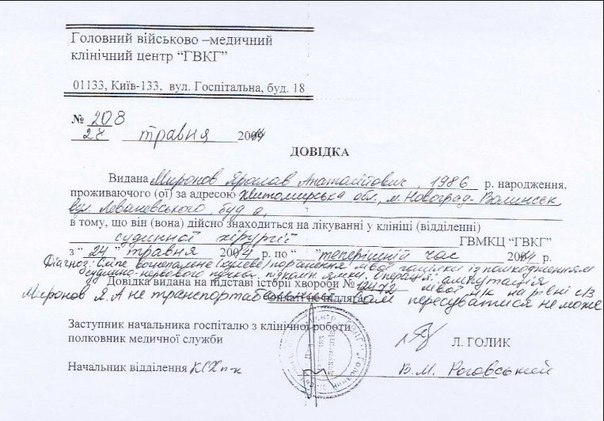 Головний військово –медичний
клінічний центр “ГВКГ”
01133, Київ-133, вул. Госпітальна, буд. 18
№ 208
травня 20
ДОВІДКА
Видана Миронов Ярослав 1986 р. народження,
проживаючого (ої) за адресою Житомирська обл, м. Новоград-Волинськ
вул буд
в тому, що він (вона) дійсно знаходиться на лікуванні у клініці (відділенні)
судинної хірургії ГВМКЦ “ГВКГ”
з “24” травня р. по “ ” теперішній час р.
Діагноз: Сліпе поранення лівої із пошкодженням
судинно-нервового пучка, ампутація
Довідка видана на підставі історії хвороби № на рівні
Миронов Я.А не пересуватися не може
Заступник начальника госпіталю з клінічної роботи
полковник медичної служби Л. ГОЛИК
Начальник відділення В.М. Роговський